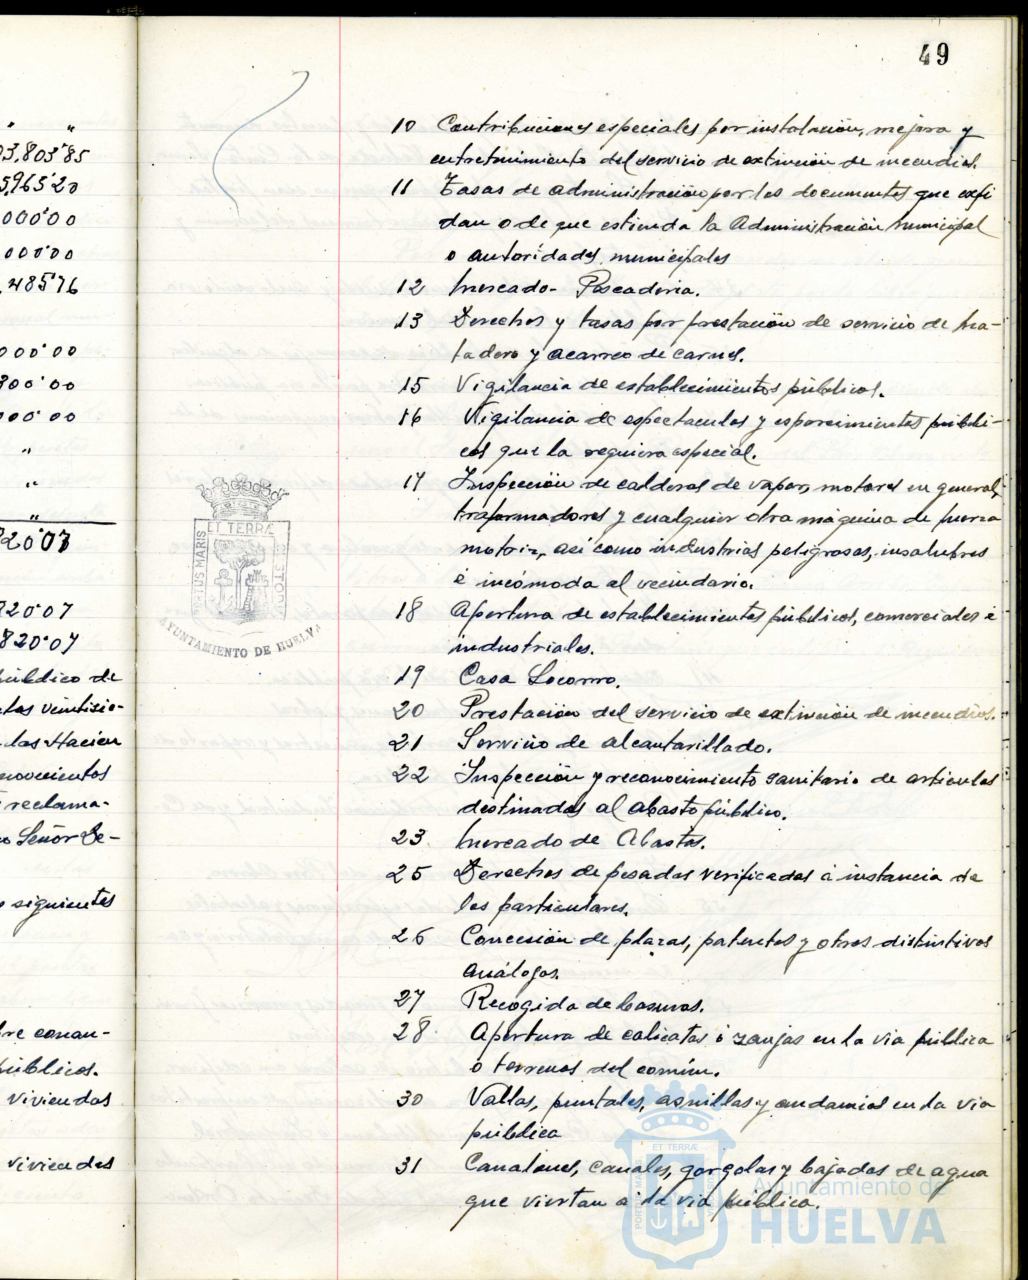 " "
03,803'85
5,965'20
000'00
00'00
,485'76
000'00
300'00
000'00
"
"
"
220'07
820'07
820'07
público de
tas veintisie-
las Hacien
novecientos
reclama-
Señor De-
siguientes
re
públicos.
viviendas
viviendas
49
10 Contribuciones especiales por instalación, mejora y
entretenimiento del servicio de extinción de incendios.
11 Tasas de administración por los documentos que expi
dan o de que estienda la Administración municipal
o autoridades municipales
12 Mercado - Pescadería.
13 Derechos y tasas por prestación de servicio de ma-
tadero y acarreo de carnes.
15 Vigilancia de establecimientos públicos.
16 Vigilancia de espectaculos y esparcimientos públi-
cos que la requiera especial.
17 Inspección de calderas de vapor, motores en general,
trasformadores y cualquier otra máquina de fuerza
motriz, así como industrias peligrosas, insalubres
é incómoda al vecindario.
18 Apertura de establecimientos públicos, comerciales é
industriales.
19 Casa Socorro.
20 Prestación del servicio de extinción de incendios.
21 Servicio de alcantarillado.
22 Inspección y reconocimiento sanitario de articulos
destinados al abasto público.
23 Mercado de Abastos.
25 Derechos de pesadas verificadas á instancia de
los particulares.
26 Concesión de placas, patentes y otros distintivos
análogos.
27 Recogida de basuras.
28 Apertura de calicatas ó zanjas en la via pública
o terrenos del común.
30 Vallas, puntales, asnillas y andamios en la via
pública
31 Canalones, canales, gorgolas y bajadas de agua
que viertan a la via pública.
PORTUS MARIS ET TERRÆ CUSTODIA
AYUNTAMIENTO DE HUELVA
PORTUS MARIS ET TERRÆ CUSTODIA
Ayuntamiento de
HUELVA